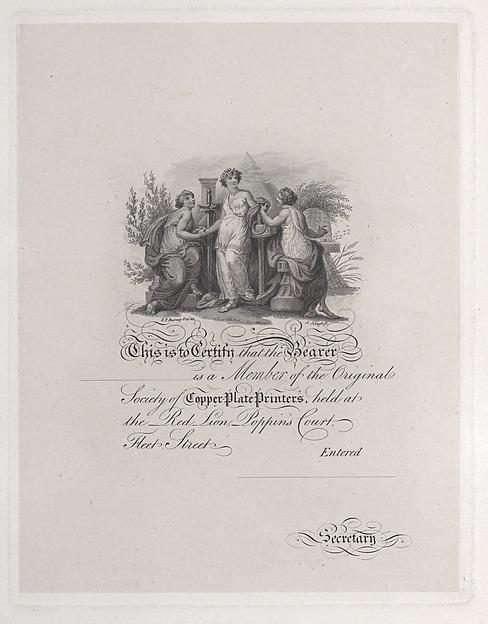 E. F. Burney Esqr. del.
This is to Certify that the Bearer
is a Member of the Original
Society of Copper Plate Printers, held at
the Red Lion, Poppins Court,
Fleet Street
Entered
Secretary